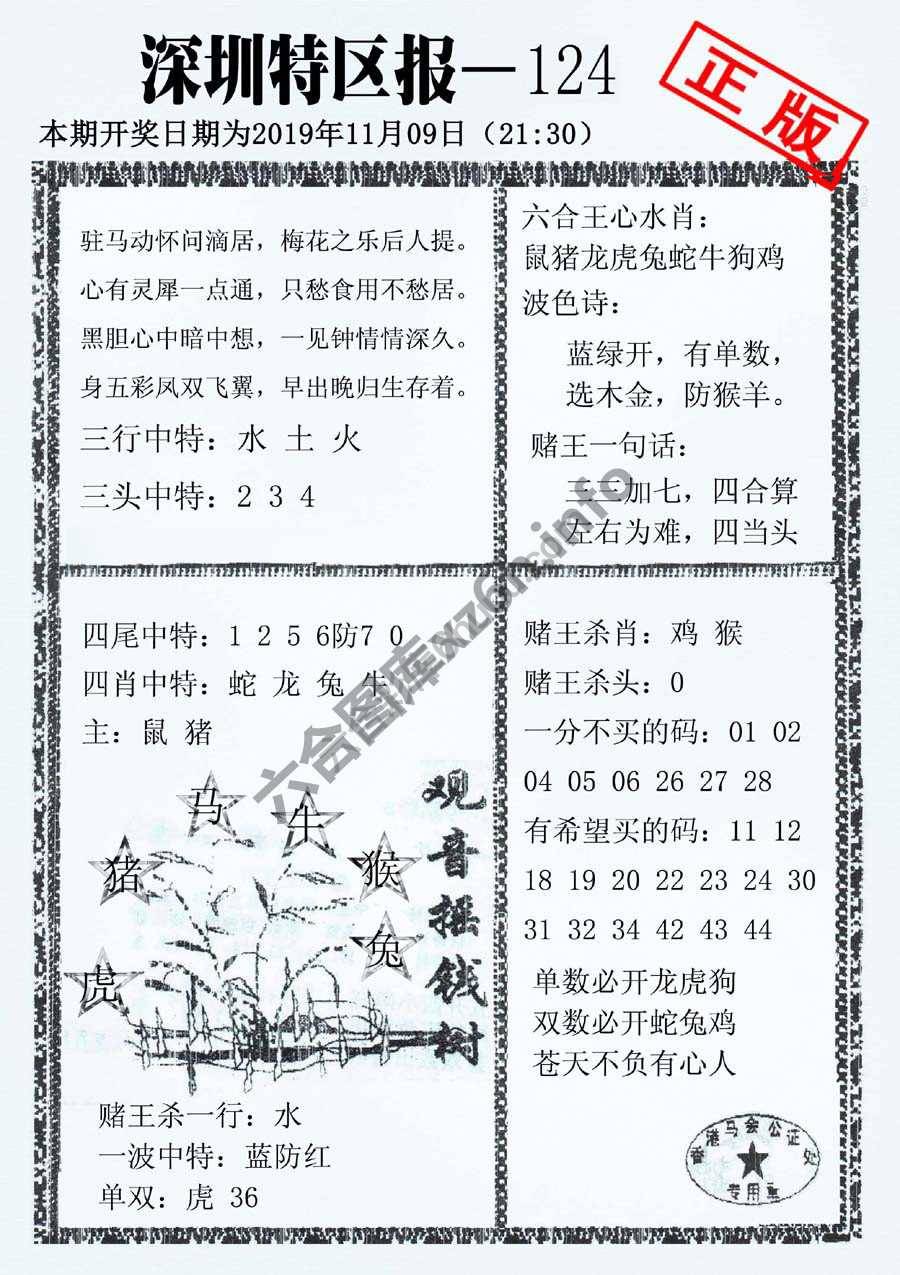 深圳特区报—124
正版
本期开奖日期为2019年11月09日（21:30）
驻马动怀问滴居，梅花之乐后人提。
心有灵犀一点通，只愁食用不愁居。
黑胆心中暗中想，一见钟情情深久。
身五彩凤双飞翼，早出晚归生存着。
三行中特：水 土 火
三头中特：2 3 4
六合王心水肖：
鼠猪龙虎兔蛇牛狗鸡
波色诗：
蓝绿开，有单数，
选木金，防猴羊。
赌王一句话：
三三加七，四合算
左右为难，四当头
四尾中特：1 2 5 6防7 0
四肖中特：蛇 龙 兔 牛
主：鼠 猪
马
牛
猪
猴
兔
虎
观音摇钱树
赌王杀一行：水
一波中特：蓝防红
单双：虎 36
赌王杀肖：鸡 猴
赌王杀头：0
一分不买的码：01 02
04 05 06 26 27 28
有希望买的码：11 12
18 19 20 22 23 24 30
31 32 34 42 43 44
单数必开龙虎狗
双数必开蛇兔鸡
苍天不负有心人
香港马会公证处
专用章
六合图库xz6h.info